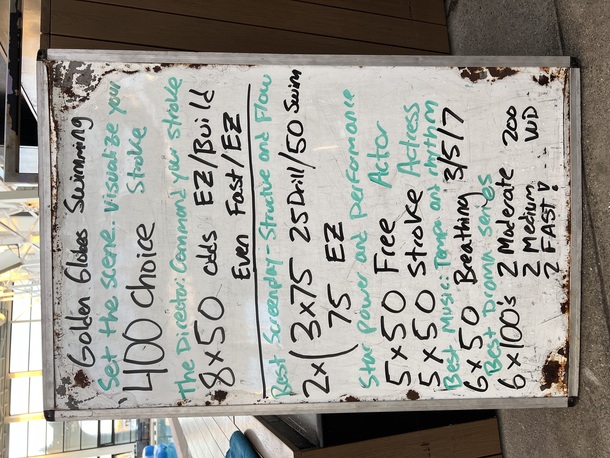 Golden Globes Swimming
Set the scene: Visualize your
Stroke
400 Choice
The Director: Command your stroke
8x50 odds EZ/Build
Even Fast/EZ
Best Screenplay - Structure and Flow
2x(3x75 25 Drill/50 Swim
75 EZ
Star power and performance
5x50 Free Actor
5x50 Stroke Actress
Best Music: Tempo and rhythm
6x50 Breathing 3/5/7
Best Drama series
6x100's 2 Moderate 200
2 Medium WD
2 FAST!